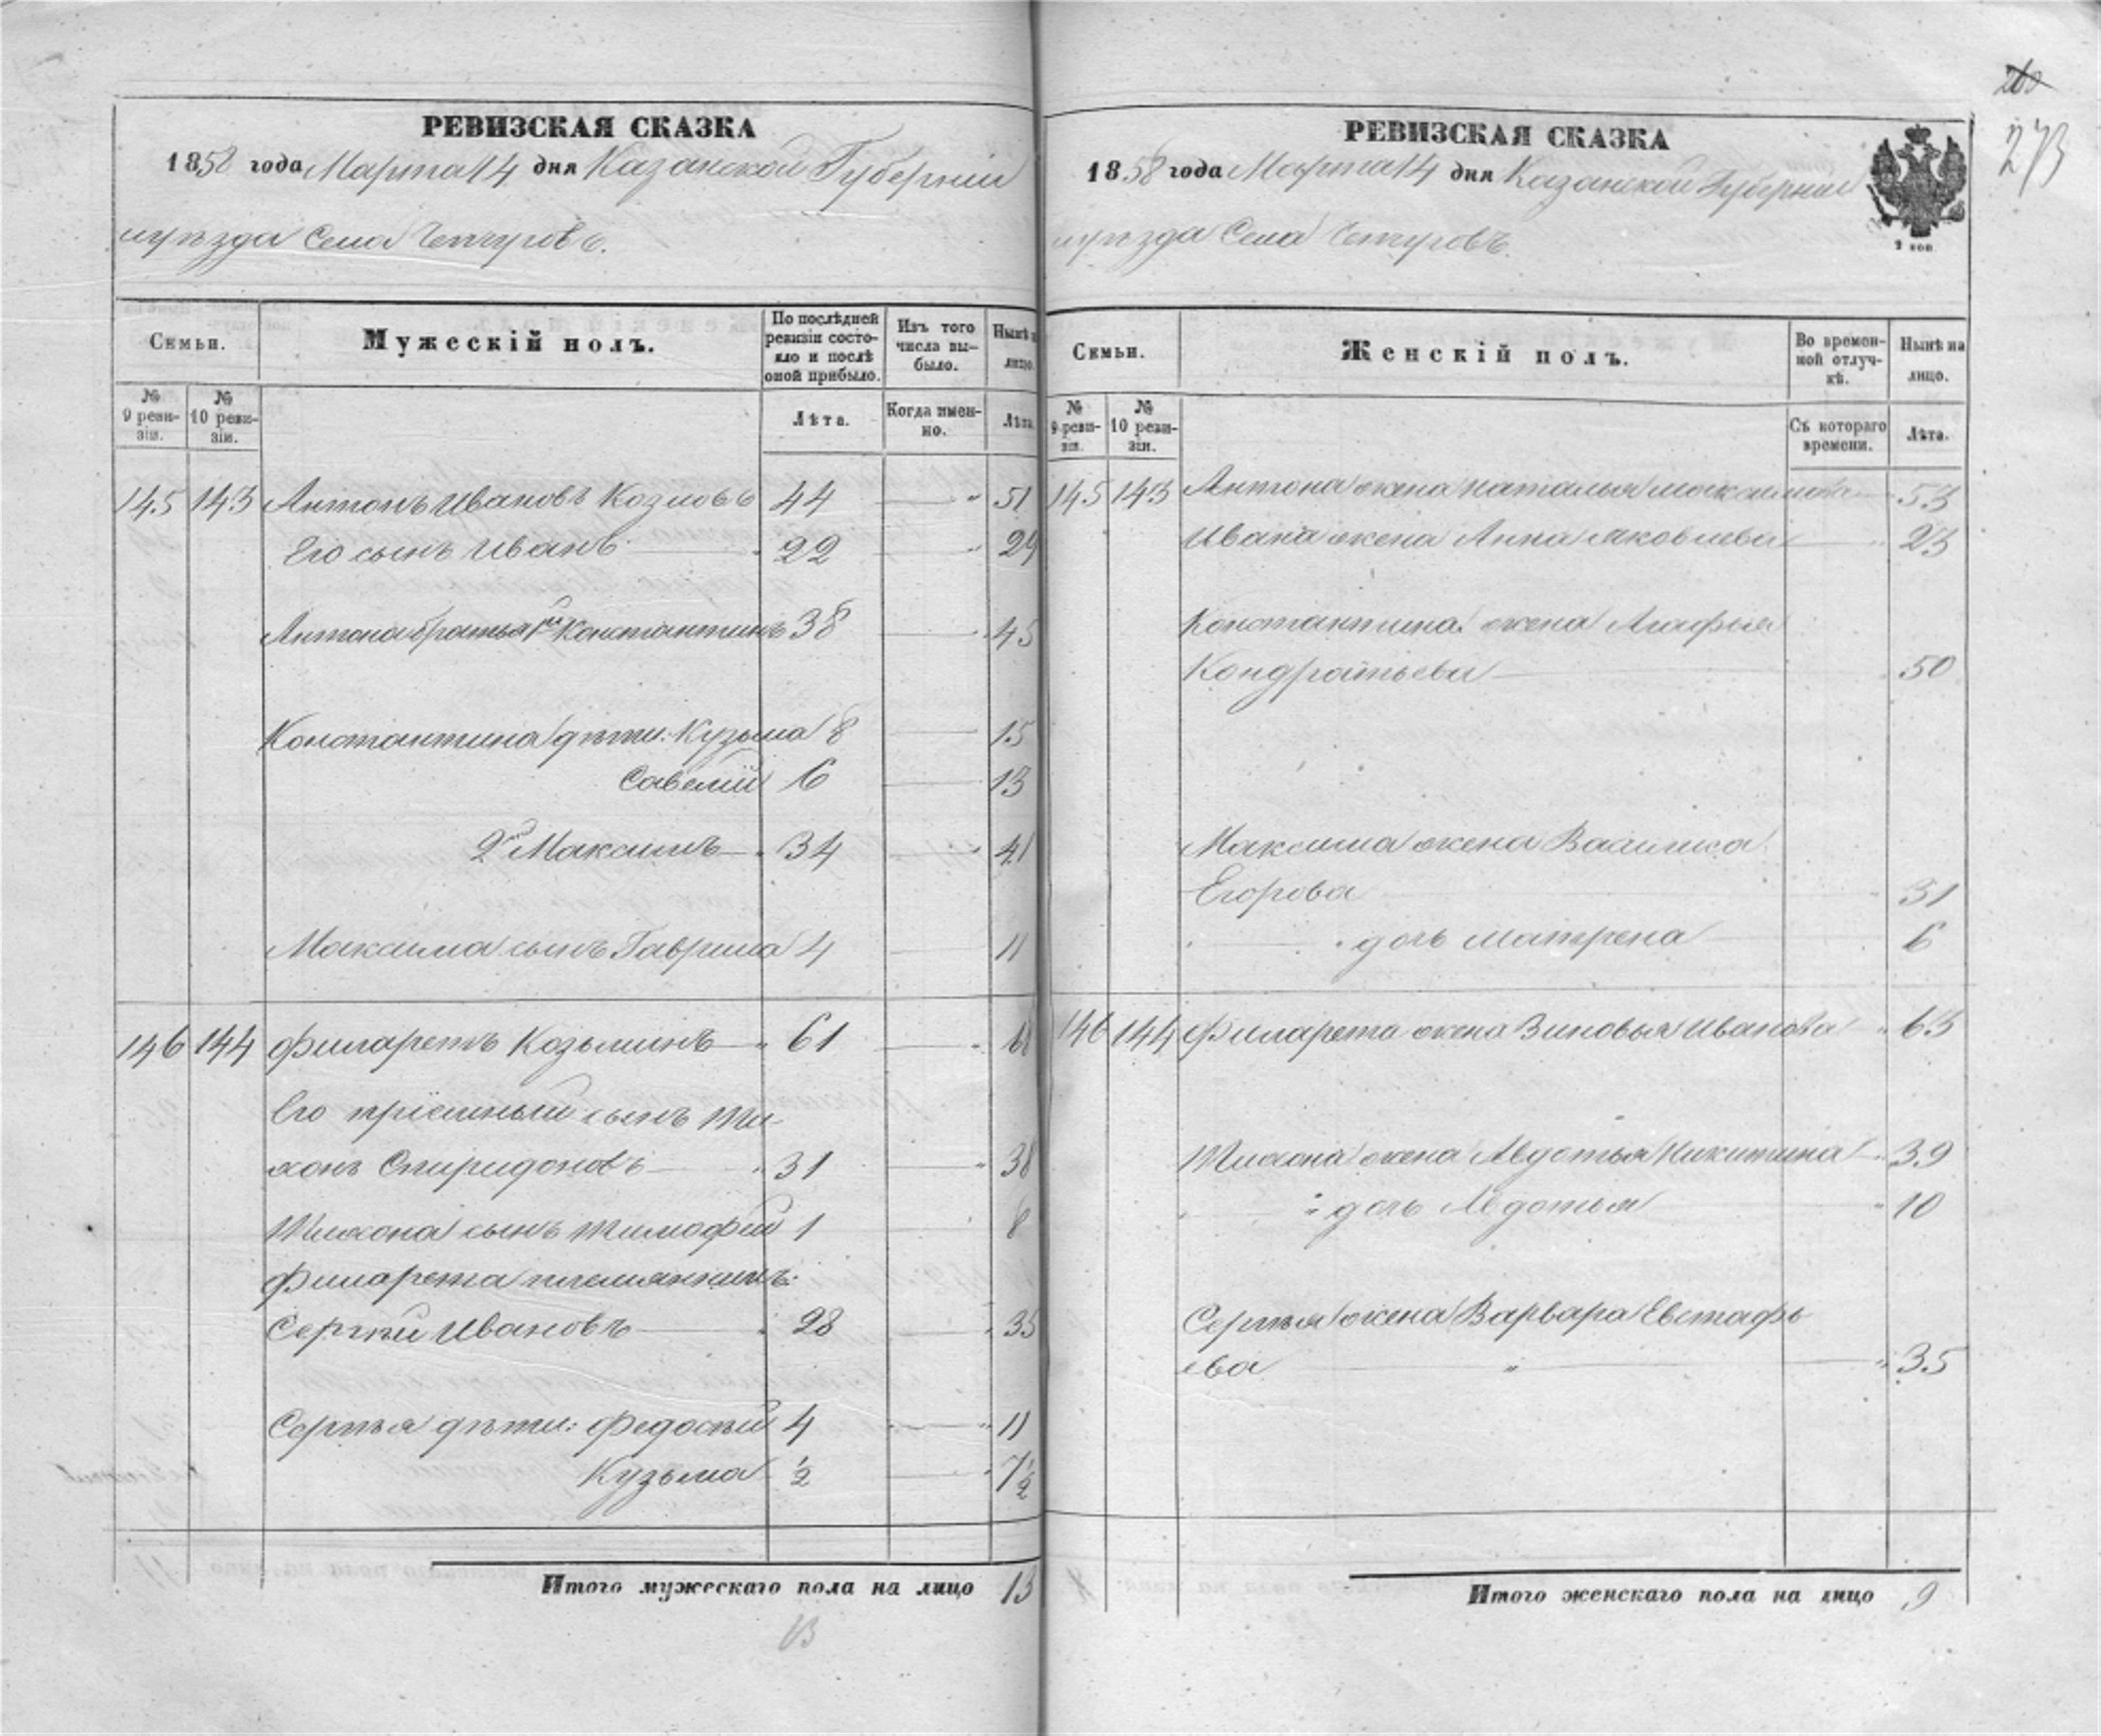 263
273
РЕВИЗСКАЯ СКАЗКА
1858 года Марта 14 дня Казанской Губерніи
уѣзда Села
Семьи.
Мужескій полъ.
По послѣдней ревизіи состояло и послѣ оной прибыло.
Изъ того числа выбыло.
Нынѣ на лицо.
№ 9 ревизіи.
№ 10 ревизіи.
Лѣта.
Когда именно.
Лѣта.
145 143 Антонъ Ивановъ Козловъ 44 — 51
Его сынъ Иванъ — 22 — 29
Антона братья 1й Константинъ 38 — 45
Константина дѣти: Кузьма 8 — 15
Савелій 6 — 13
2й Максимъ — 34 — 41
Максима сынъ Гаврила 4 — 11
146 144 Филаретъ Козьминъ — 61 — 68
Его пріемный сынъ Ти-
хонъ Спиридоновъ — 31 — 38
Тихона сынъ Тимофей 1 — 8
Филарета племянникъ:
Сергѣй Ивановъ — 28 — 35
Сергѣя дѣти: Федосѣй 4 — 11
Кузьма 1/2 — 7 1/2
Итого мужескаго пола на лицо 13
13
РЕВИЗСКАЯ СКАЗКА
1858 года Марта 14 дня Казанской Губерніи
уѣзда Села
2 коп
Семьи.
Женскій полъ.
Во временной отлучкѣ.
Нынѣ на лицо.
№ 9 ревизіи.
№ 10 ревизіи.
Съ котораго времени.
Лѣта.
145 143 Антона жена Наталья Максимова — 53
Ивана жена Анна Яковлева — 23
Константина жена Агафья
Кондратьева — 50
Максима жена Василиса
Егорова — 31
дочь Матрена — 6
146 144 Филарета жена Зиновья Иванова — 63
Тихона жена Авдотья Никитина — 39
дочь Авдотья — 10
Сергѣя жена Варвара Евстафь
ева — 35
Итого женскаго пола на лицо 9